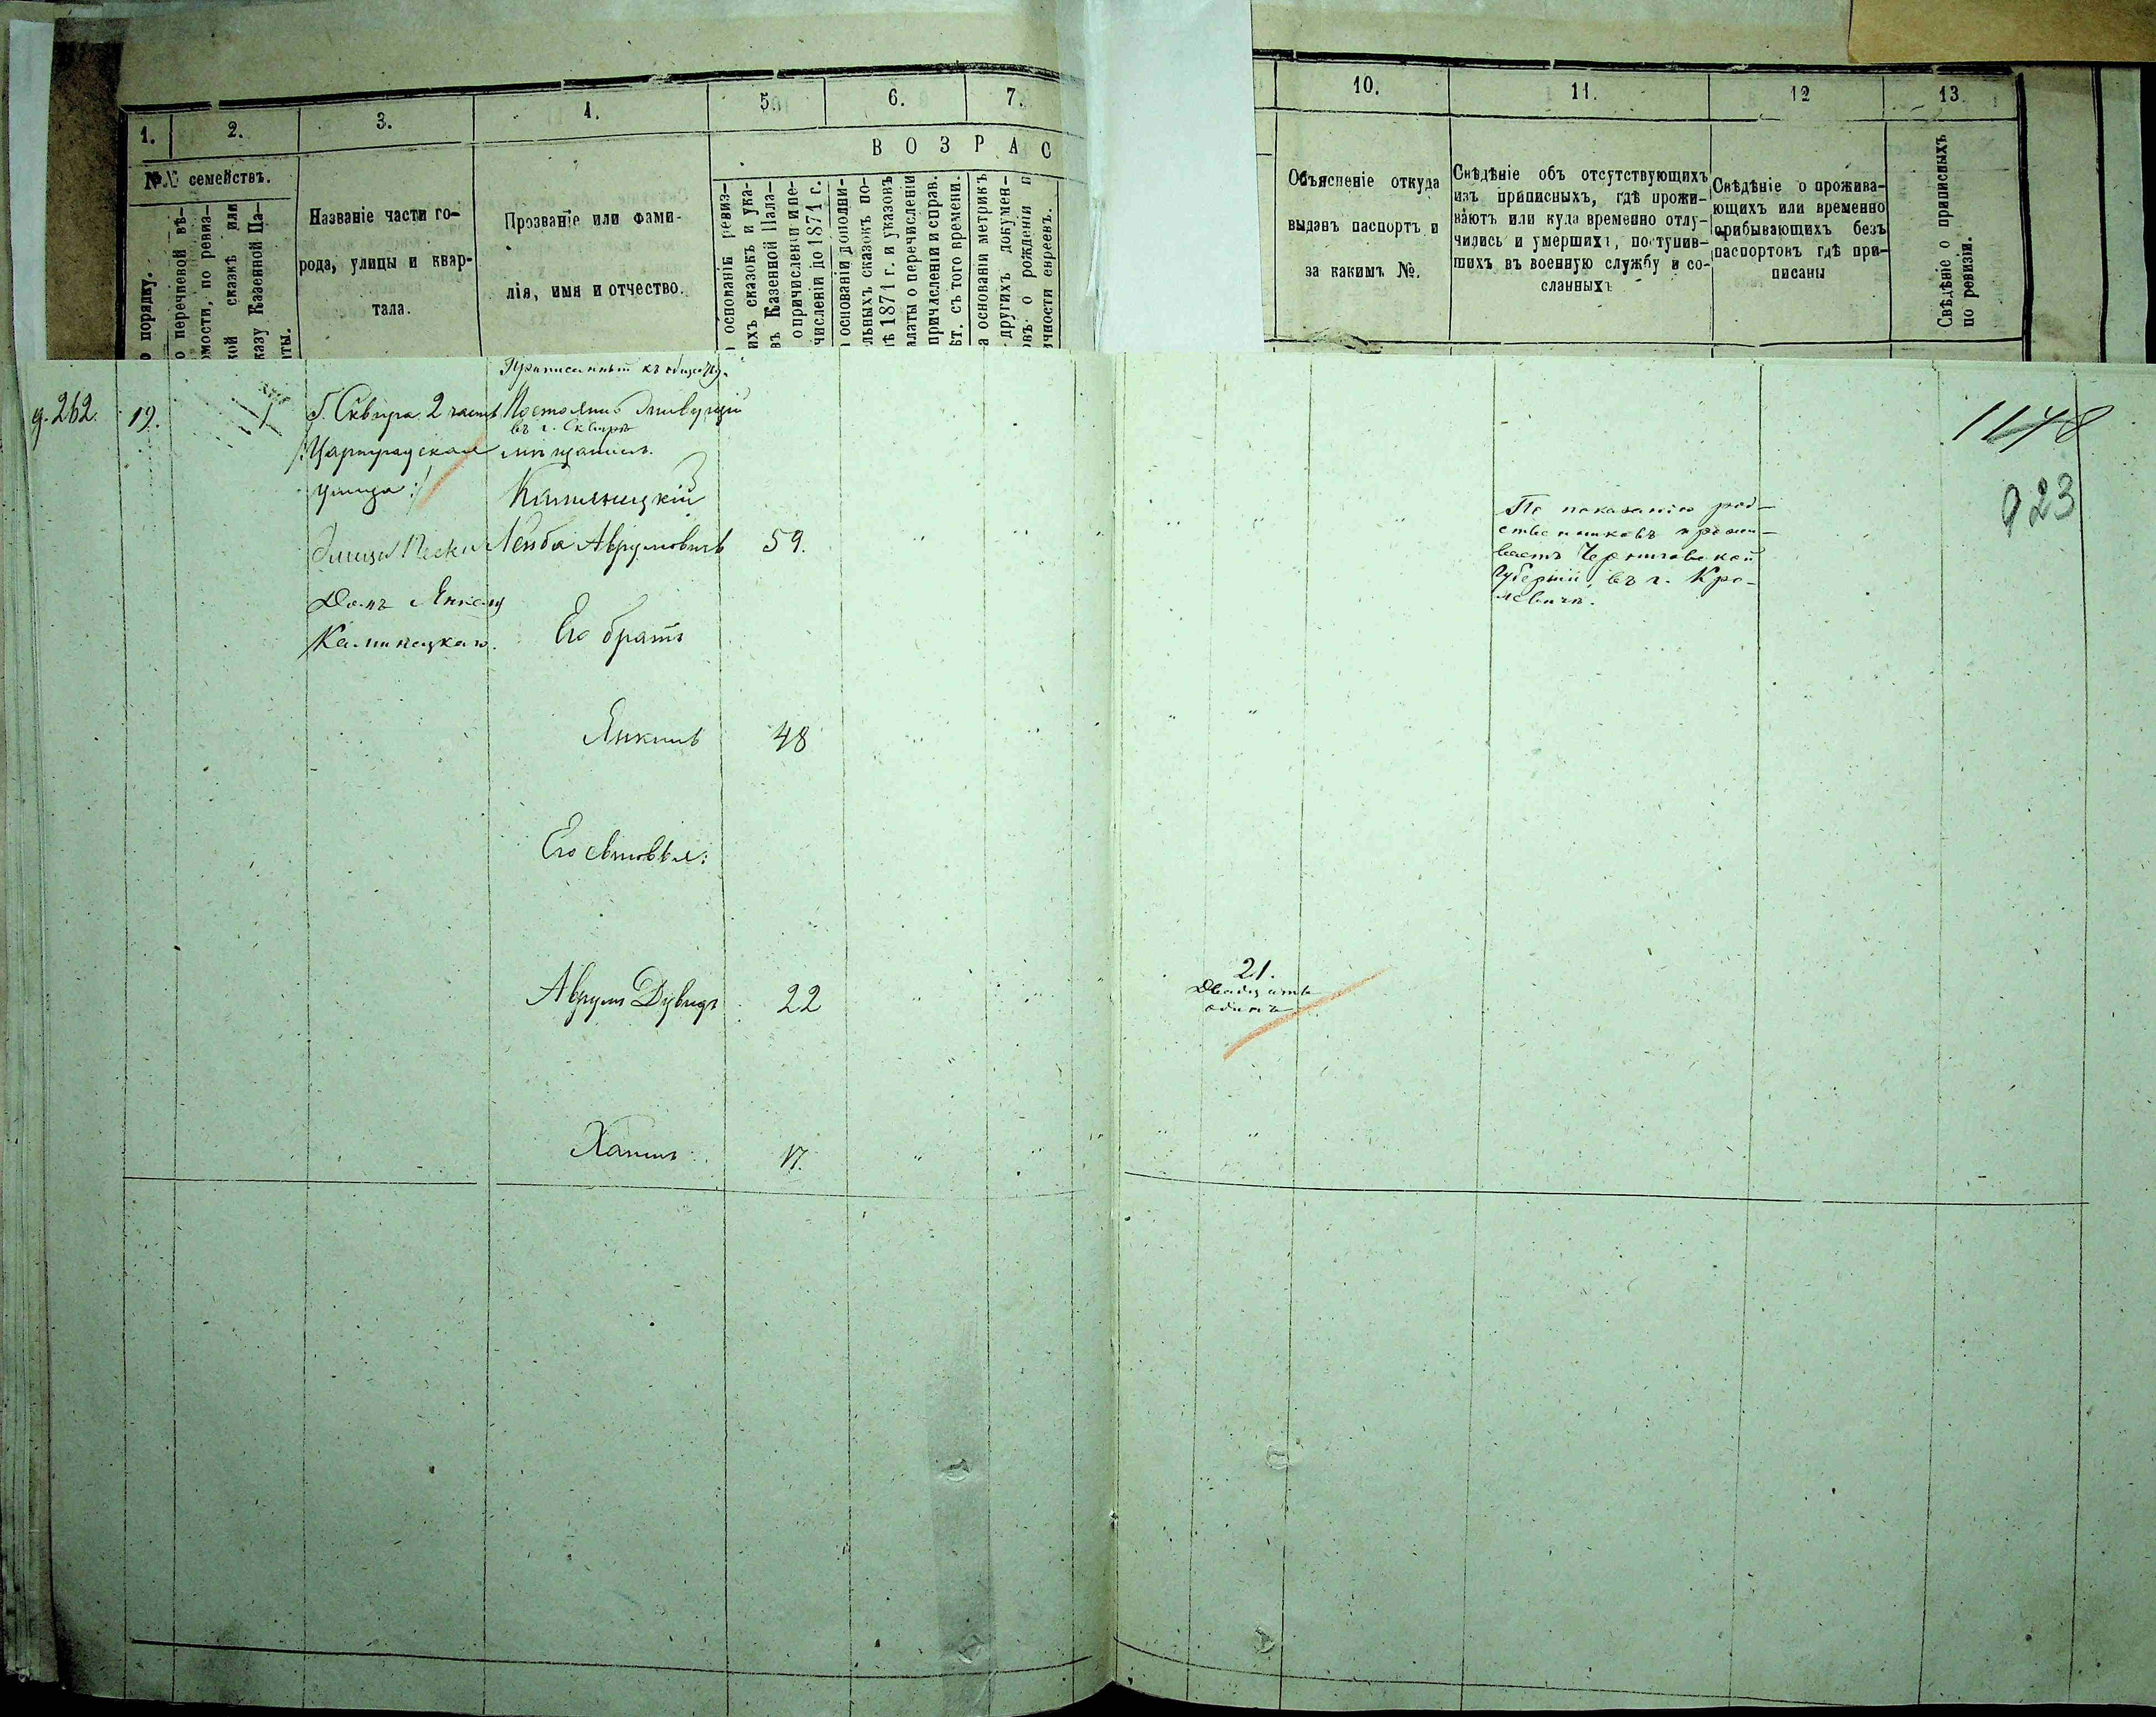 1.
2.
3.
4.
5.
6.
7.
10.
11.
12
13.
В О З Р А С
№№ семействъ.
о порядку.
о перечневой вѣ-
омости, по ревиз-
кой сказкѣ или
казу Казенной Па-
аты.
Названіе части го-
рода, улицы и квар-
тала.
Прозваніе или фами-
лія, имя и отчество.
основаніи ревиз-
ихъ сказокъ и ука-
въ Казенной Пала-
о причисленіи и пе-
числеши до 1871 г.
основаніи дополни-
льныхъ сказокъ по-
ѣ 1871 г. и указовъ
алаты о перечисленіи
причисленіи и справ.
ѣт. съ того времени.
а основаніи метрикъ
другихъ докумен-
овъ о рожденіи п
ичности евреевъ.
Объясненіе откуда
выданъ паспортъ и
за какимъ №.
Свѣдѣніе объ отсутствующихъ
изъ приписныхъ, гдѣ прожи-
ваютъ или куда временно отлу-
чились и умершихъ, поступив-
шихъ въ военную службу и со-
сланныхъ
Свѣдѣніе о прожива-
ющихъ или временно
прибывающихъ безъ
паспортовъ гдѣ при-
писаны
Свѣдѣніе о приписныхъ
по ревизіи.
Приписанный къ обществу
д. 262.
19.
1
Г. Сквира 2 часть
Цариградская
улица:
Дому Янкеля
Калиницкаго.
Постоянно живущій
въ г. Сквирѣ
мѣщанинъ.
Лейба Аврумовичъ
59.
Его братъ
Янкель
48
Его сыновья:
Аврумъ Дувидъ
22
Хаимъ
17.
21.
Двадцать
одинъ
По показанію род-
ственниковъ прожи-
ваетъ Черниговской
Губерніи, въ г. Кро-
левичъ.
1148
923